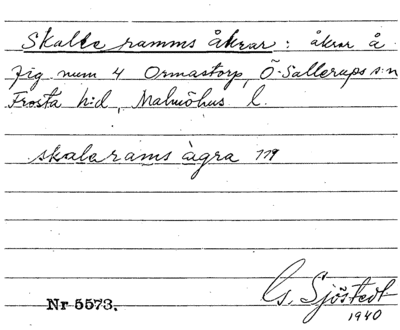 Skalle ramms åkrar: åkrar å
fig num 4 Ormastorp, Ö. Sallerups s:n
Frosta h:d, Malmöhus l.
skalarams ågra 119
G. Sjöstedt
Nr 5573.
1940